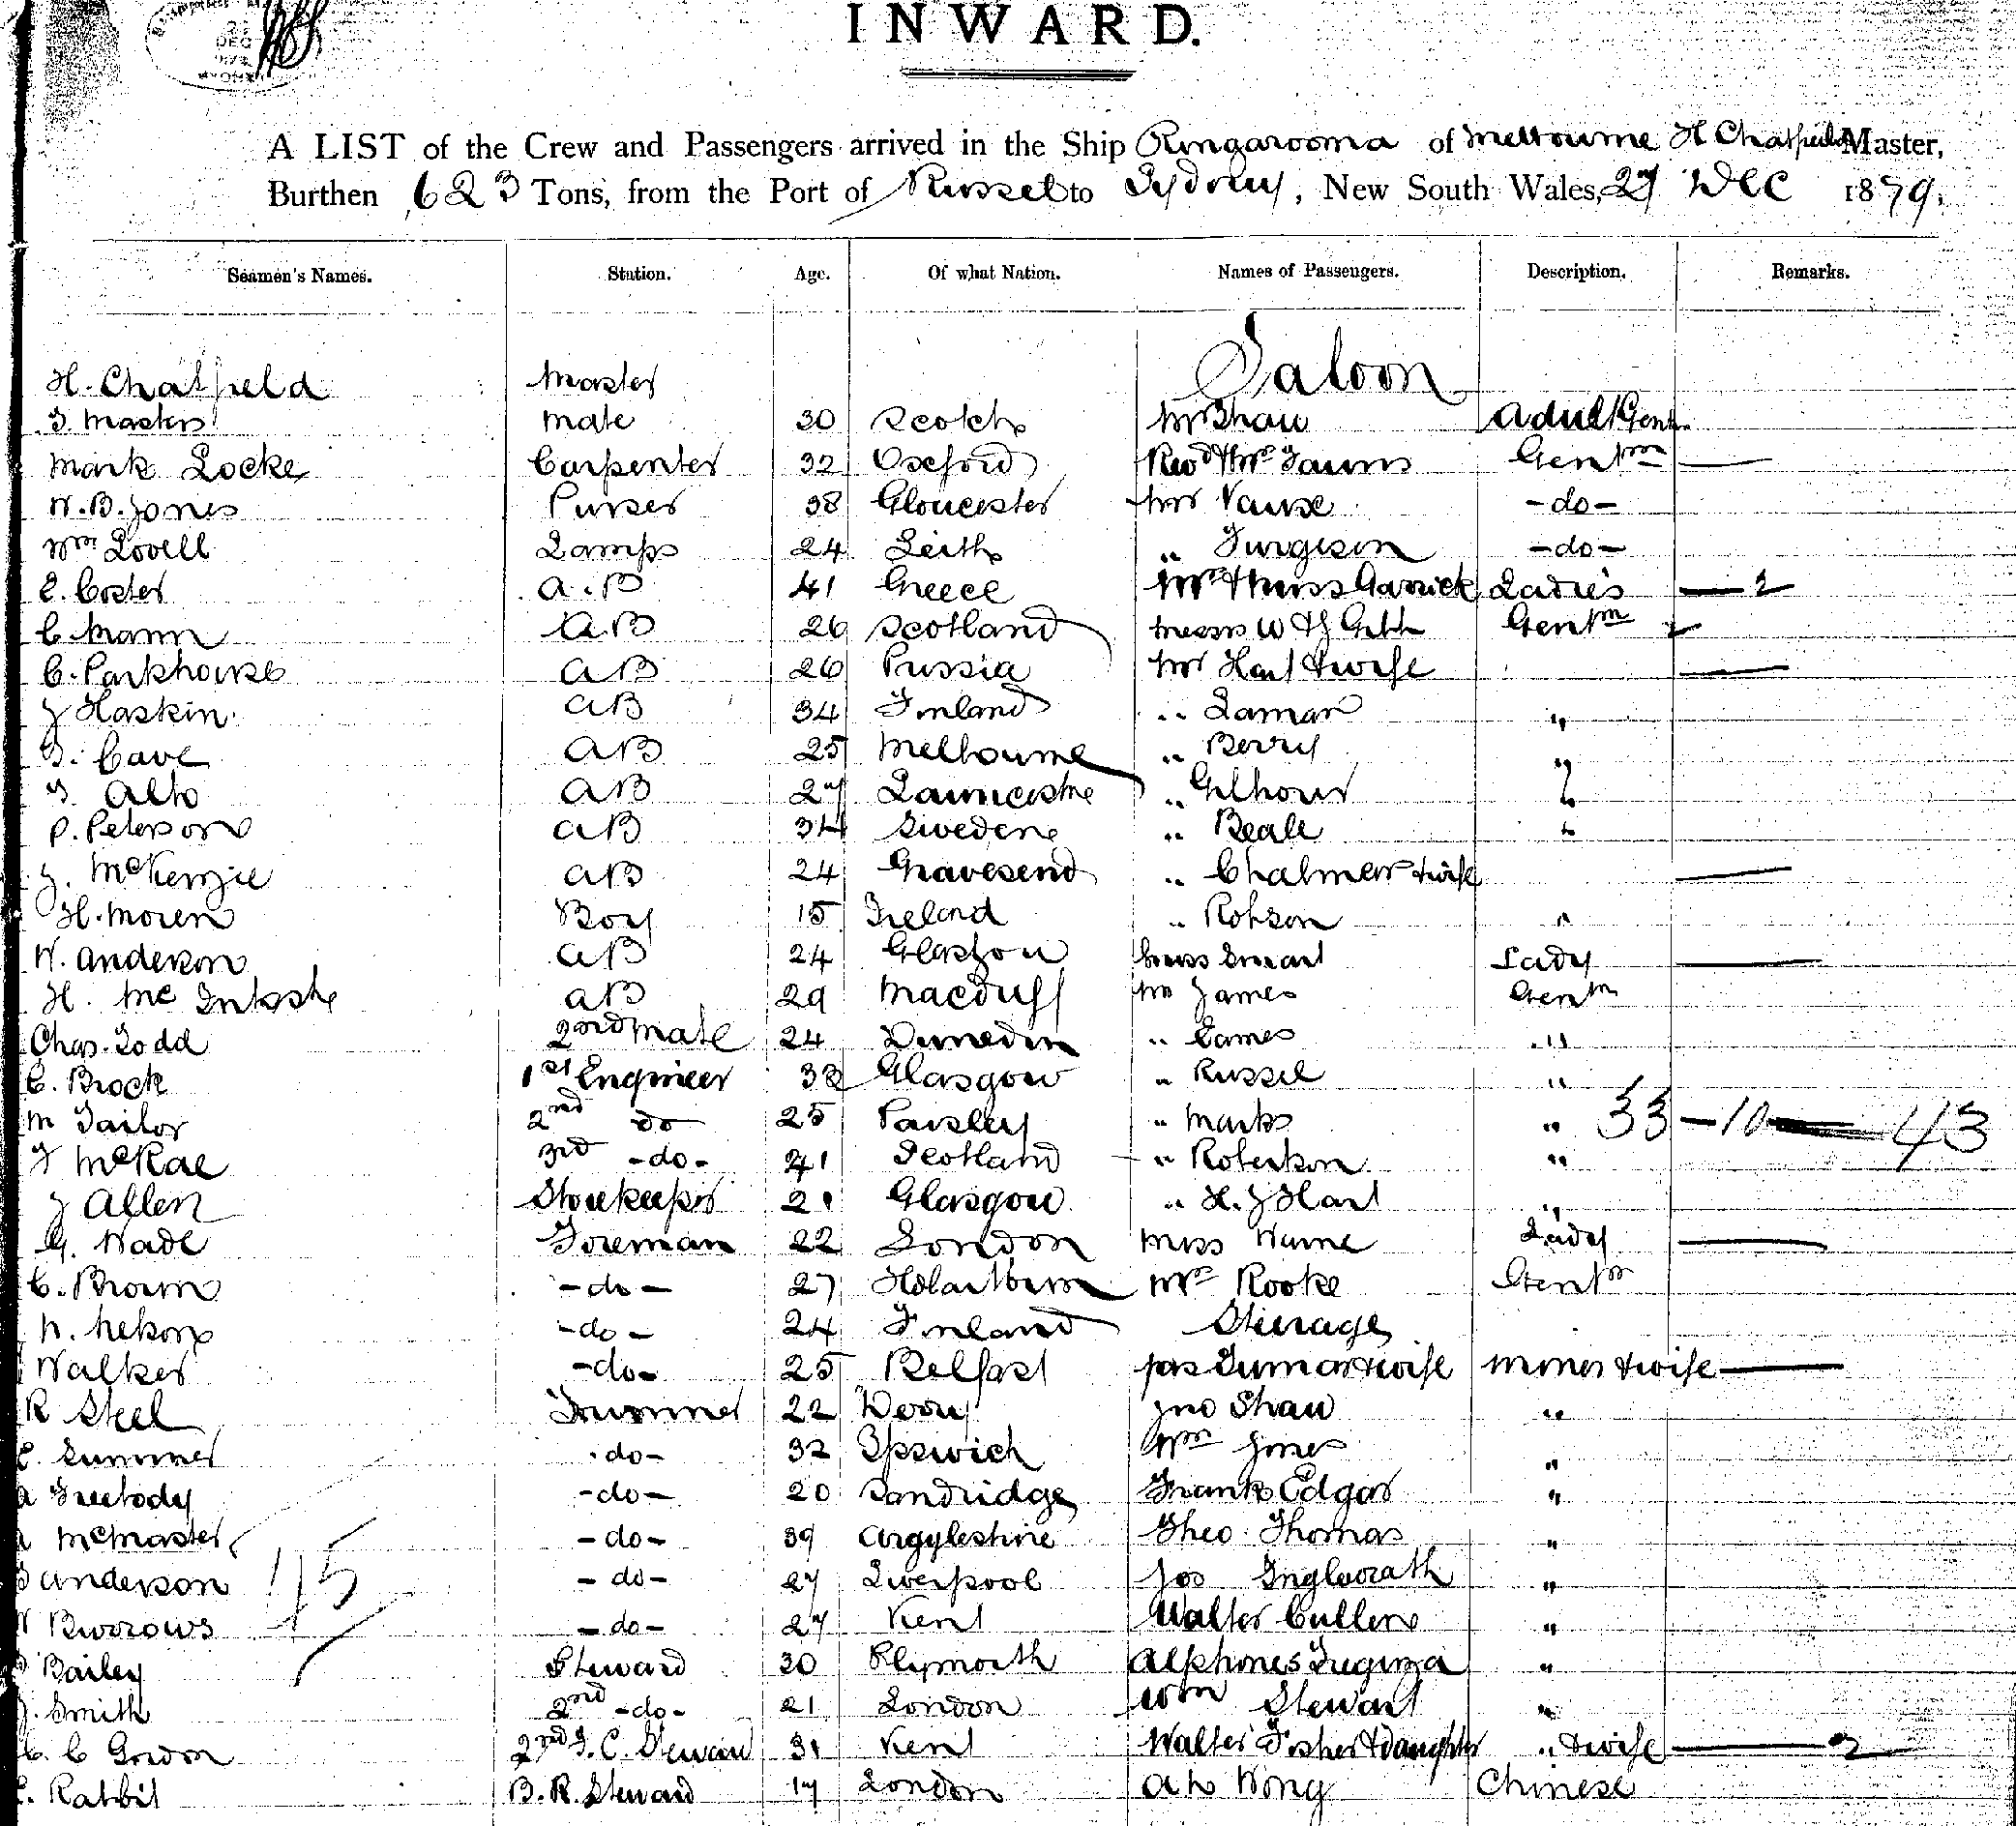 INWARD.
A LIST of the Crew and Passengers arrived in the Ship Ringarooma of Melbourne H Chatfield Master,
Burthen 623 Tons, from the Port of Russel to Sydney, New South Wales, 27 Dec 1879.
Seamen's Names. Station. Age. Of what Nation. Names of Passengers. Description. Remarks.
Saloon
H. Chatfield Master
Masters Mate 30 Scotch Mr Shaw Adult Gent
Mark Locke Carpenter 32 Oxford Revd & Mrs Gentmn
W. B. Jones Purser 38 Gloucester Mr Vause -do-
Wm Lovell Lamps 24 Leith " Furgeson -do-
E. Coster A.B 41 Greece Mrs & Miss Garrick Ladies 2
C. Mann AB 26 Scotland Messrs W & J Gibb Gentmn
C. Parkhouse AB 26 Russia Mr Hart & wife
J Haskin AB 34 Finland " Laman "
Cave AB 25 Melbourne " Berry "
Alto AB 27 "
P. Peterson AB 34 Swedene " Beale "
J. McKenzie AB 24 Gravesend " Chalmers & wife
H. Moren Boy 15 Ireland " Robson "
W. Anderson AB 24 Miss Smart Lady
H. AB 29 Macduff Mr James Gentm
Chas. Todd 2nd Mate 24 Dunedin " Eames "
C. Brock 1st Engineer Glasgow " Russel "
M Tailor 2nd do 25 Paisley " Marks " 33 - 10 43
McRae 3rd -do- Scotland " Robertson "
J Allen Storekeeper 21 Glasgow " H. J Hart "
G. Wade Foreman 22 London Miss Lady
C. Brown -do- 27 Mr Rooke Gentm
N. Nelson -do- 24 Finland Steerage
Walker -do- 25 Belfast Jas Turner & wife Miner & wife
R Steel Trimmer 22 Derry Jno Shaw "
Summer -do- 32 Ipswich Wm Jones "
Freebody -do- 20 Sandridge Frank Edgar "
McMaster -do- 39 Argyleshire Theo Thomas "
Anderson -do- 27 Liverpool Jos "
45
W Burrows -do- 27 Kent Walter Cullen "
Bailey Steward 30 Plymouth Alphones "
J. Smith 2nd -do- 21 London Wm Stewart "
C. C Gordon 2nd S. C. Steward 31 Kent Walter Fosher & daughter " & wife 2
Rabbit B. R. Steward 17 London Ah Wong Chinese